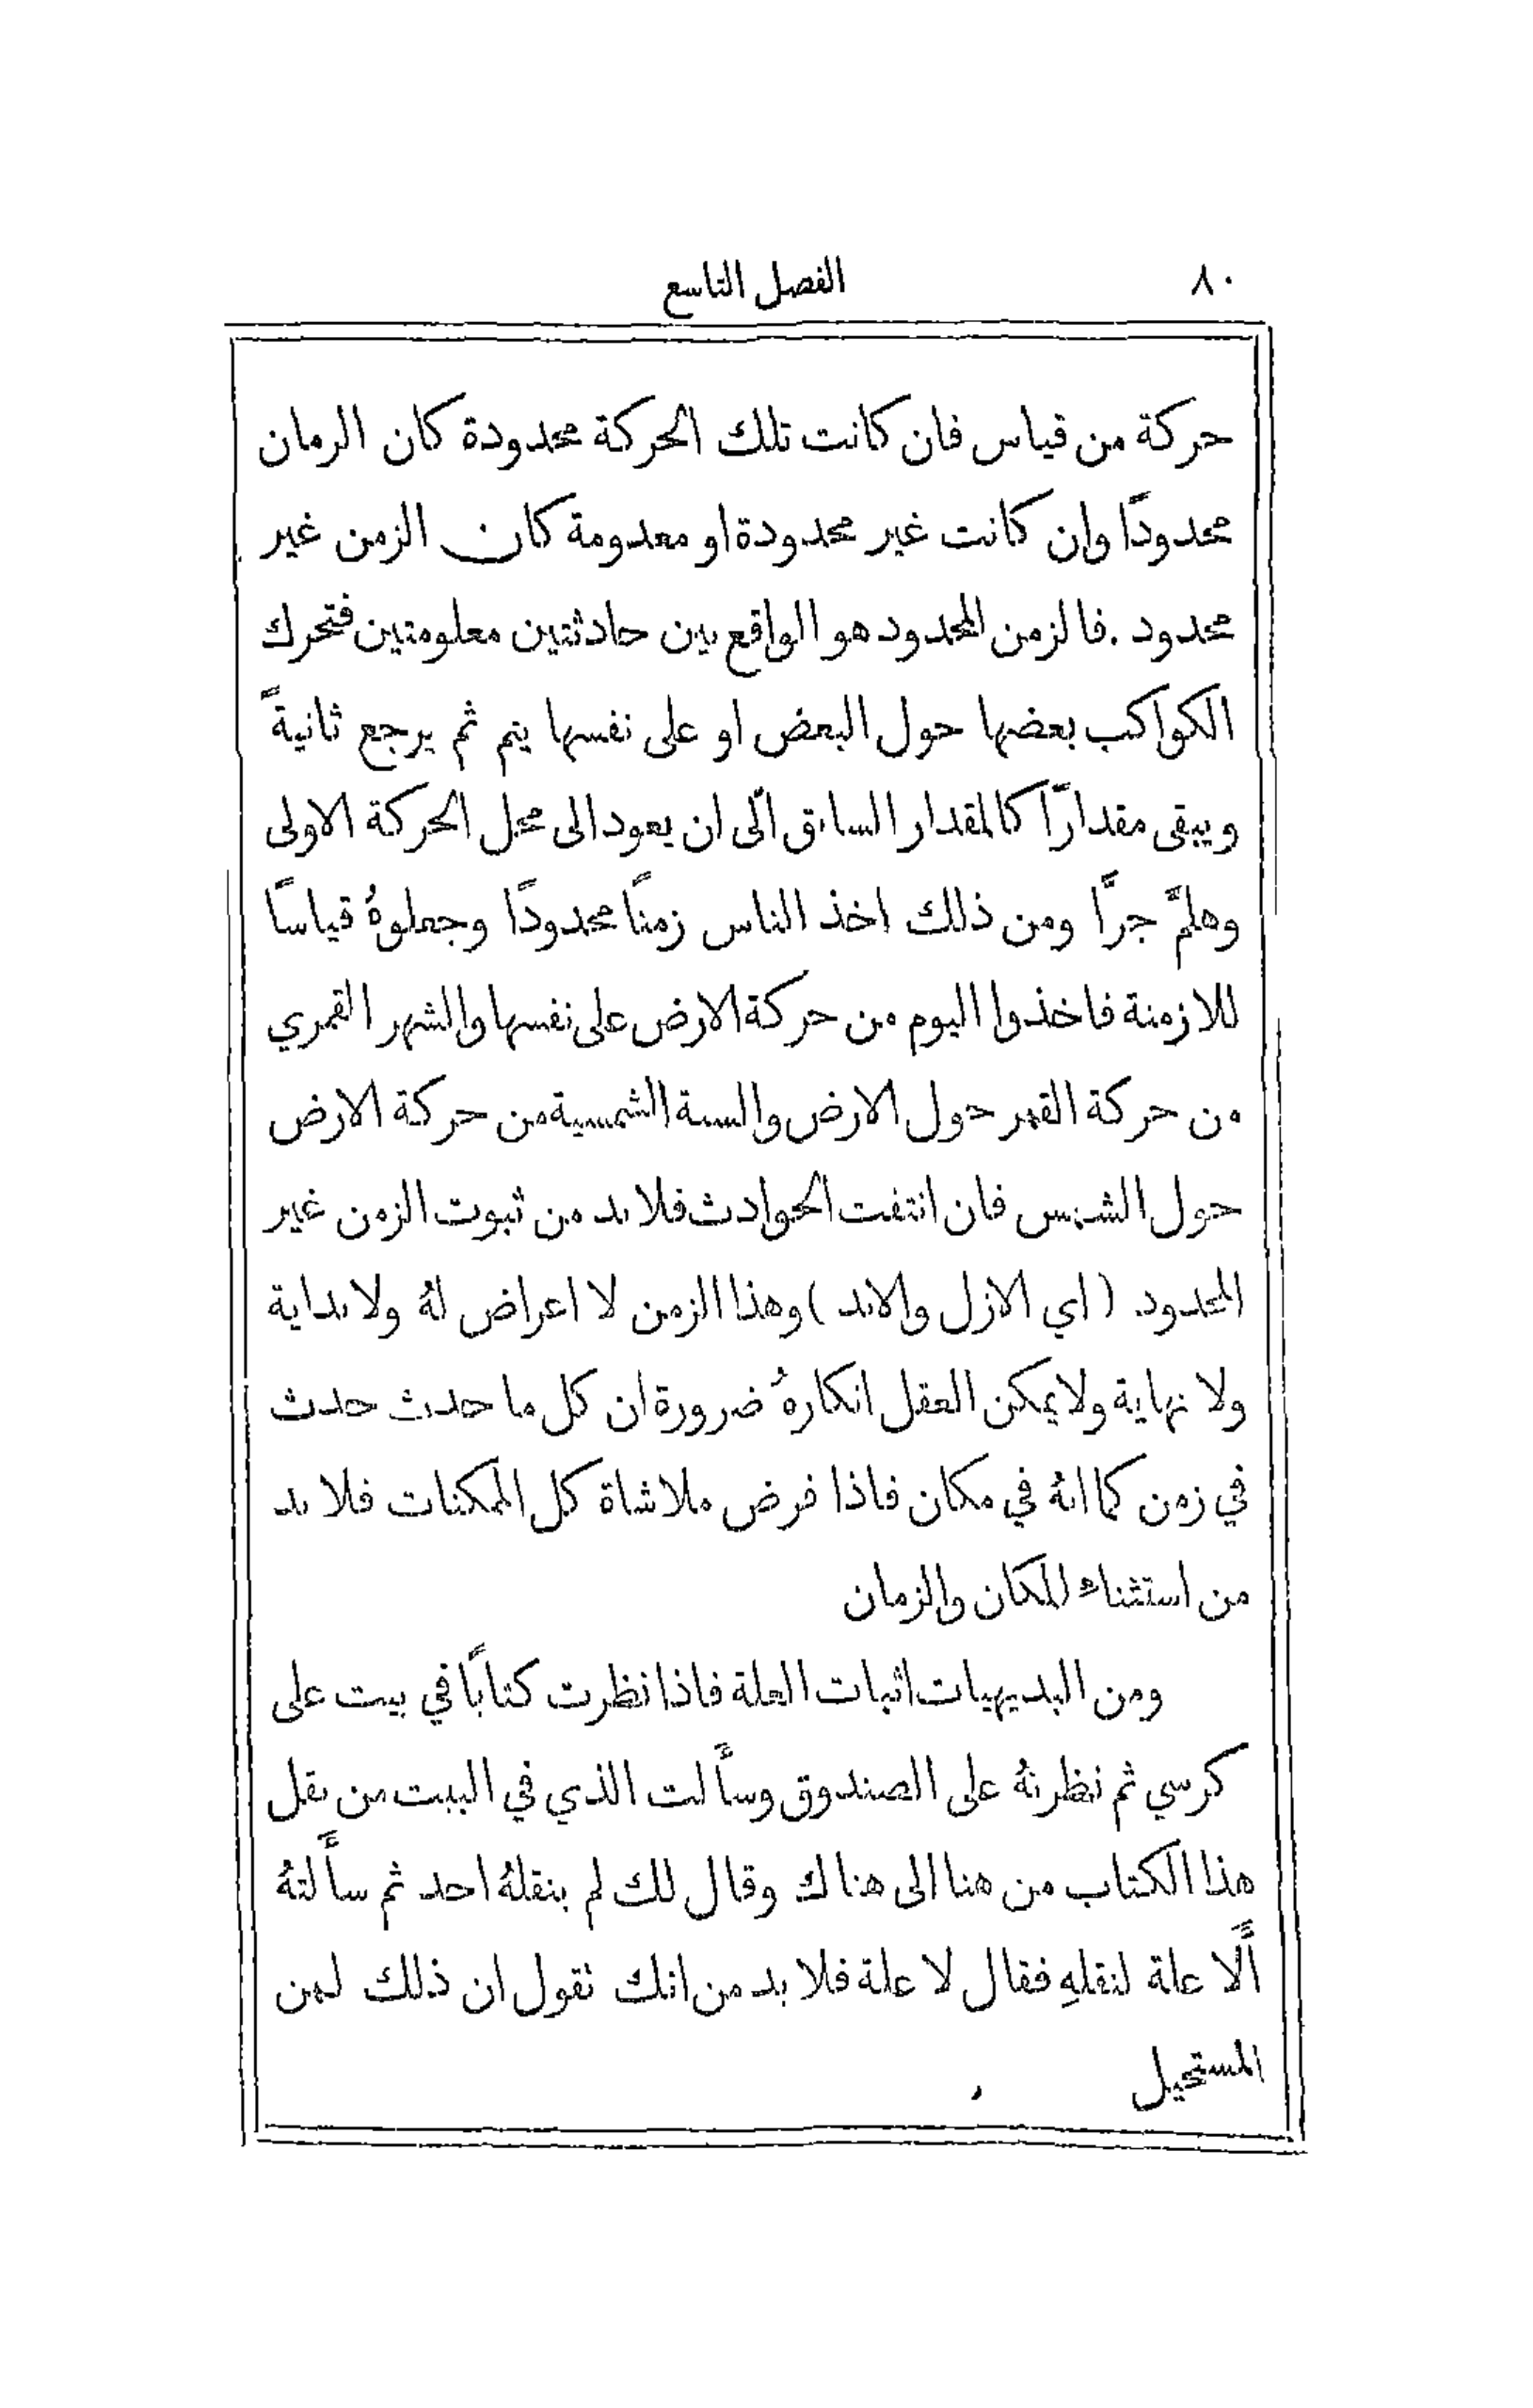 ٨٠
الفصل التاسع
حركة من قياس فان كانت تلك الحركة محدودة كان الزمان
محدودًا وان كانت غير محدودة او معدومة كان الزمن غير
محدود . فالزمن المحدود هو الواقع بين حادثتين معلومتين فتحرك
الكواكب بعضها حول البعض او على نفسها يتم ثم يرجع ثانيةً
ويبقى مقدارًا كالمقدار السابق الى ان يعود الى محل الحركة الاولى
وهلمَّ جرًّا ومن ذلك اخذ الناس زمنًا محدودًا وجعلوهُ قياسًا
للازمنة فاخذوا اليوم من حركة الارض على نفسها والشهر القمري
من حركة القمر حول الارض والسنة الشمسية من حركة الارض
حول الشمس فان انتفت الحوادث فلا بد من ثبوت الزمن غير
المحدود. (اي الازل والابد) وهذا الزمن لا اعراض لهُ ولا بداية
ولا نهاية ولا يمكن العقل انكارهُ ضرورة ان كل ما حدث حدث
في زمن كما انهُ في مكان فاذا فرض ملاشاة كل الممكنات فلا بد
من استثناء المكان والزمان
ومن البديهيات اثبات العلة فاذا نظرت كتابًا في بيت على
كرسي ثم نظرتهُ على الصندوق وسأَلت الذي في البيت من نقل
هذا الكتاب من هنا الى هناك وقال لك لم ينقلهُ احد ثم سأَلتهُ
أَلا علة لنقلهِ فقال لا علة فلا بد من انك تقول ان ذلك لمن
المستحيل